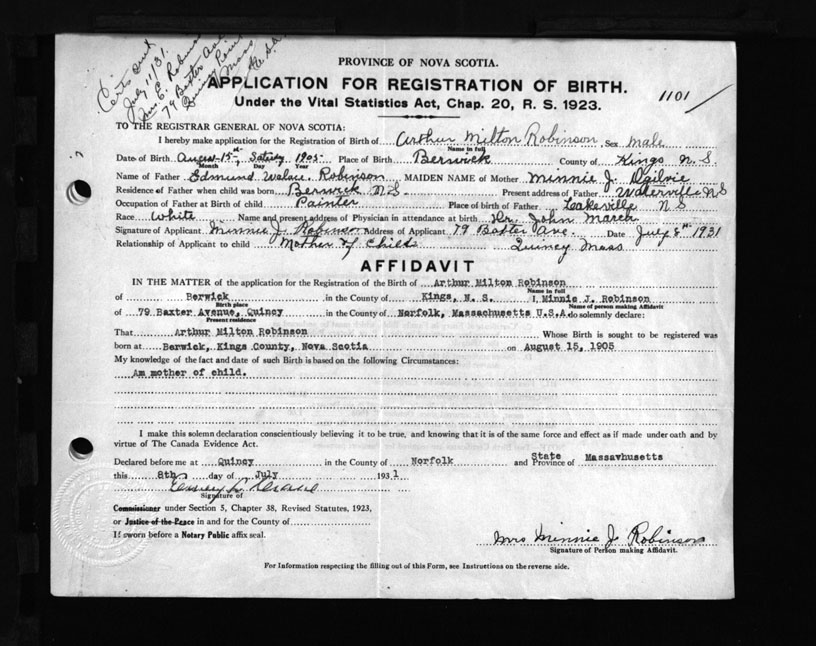 Certs sent
July 11/31.
Mrs E. Robinson
79 Baxter Ave
Quincy
Mass
U.S.A.
PROVINCE OF NOVA SCOTIA.
APPLICATION FOR REGISTRATION OF BIRTH.
1101
Under the Vital Statistics Act, Chap. 20, R. S. 1923.
TO THE REGISTRAR GENERAL OF NOVA SCOTIA:
I hereby make application for the Registration of Birth of Arthur Milton Robinson Sex male
Name in full
Date of Birth August 15, 1905 Place of Birth Berwick County of Kings N. S.
Month Day Year
Name of Father Edmund Walace Robinson MAIDEN NAME of Mother Minnie J. Ogilvie
Residence of Father when child was born Berwick N S Present address of Father Waterville N S
Occupation of Father at Birth of child Painter Place of birth of Father Lakeville N S
Race White Name and present address of Physician in attendance at birth Dr. John March
Signature of Applicant Minnie J. Robinson Address of Applicant 79 Baxter Ave. Date July 8th 1931
Relationship of Applicant to child Mother of Child Quincy Mass
AFFIDAVIT
IN THE MATTER of the application for the Registration of the Birth of Arthur Milton Robinson
Name in full
of Berwick in the County of Kings, N. S. I, Minnie J. Robinson
Birth place Name of person making Affidavit
of 79 Baxter Avenue, Quincy in the County of Norfolk, Massachusetts U.S.A. do solemnly declare:
Present residence
That Arthur Milton Robinson Whose Birth is sought to be registered was
born at Berwick, Kings County, Nova Scotia on August 15, 1905
My knowledge of the fact and date of such Birth is based on the following Circumstances:
Am mother of child.
I make this solemn declaration conscientiously believing it to be true, and knowing that it is of the same force and effect as if made under oath and by
virtue of The Canada Evidence Act.
Declared before me at Quincy in the County of Norfolk and State Province of Massavhusetts
this 8th day of July 1931
Signature of
Commissioner under Section 5, Chapter 38, Revised Statutes, 1923,
or Justice of the Peace in and for the County of
If sworn before a Notary Public affix seal.
Mrs Minnie J. Robinson
Signature of Person making Affidavit.
For Information respecting the filling out of this Form, see Instructions on the reverse side.